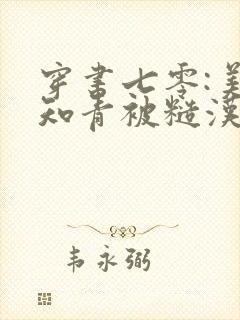 穿书七零:美
知青被糙漢
韦永弼